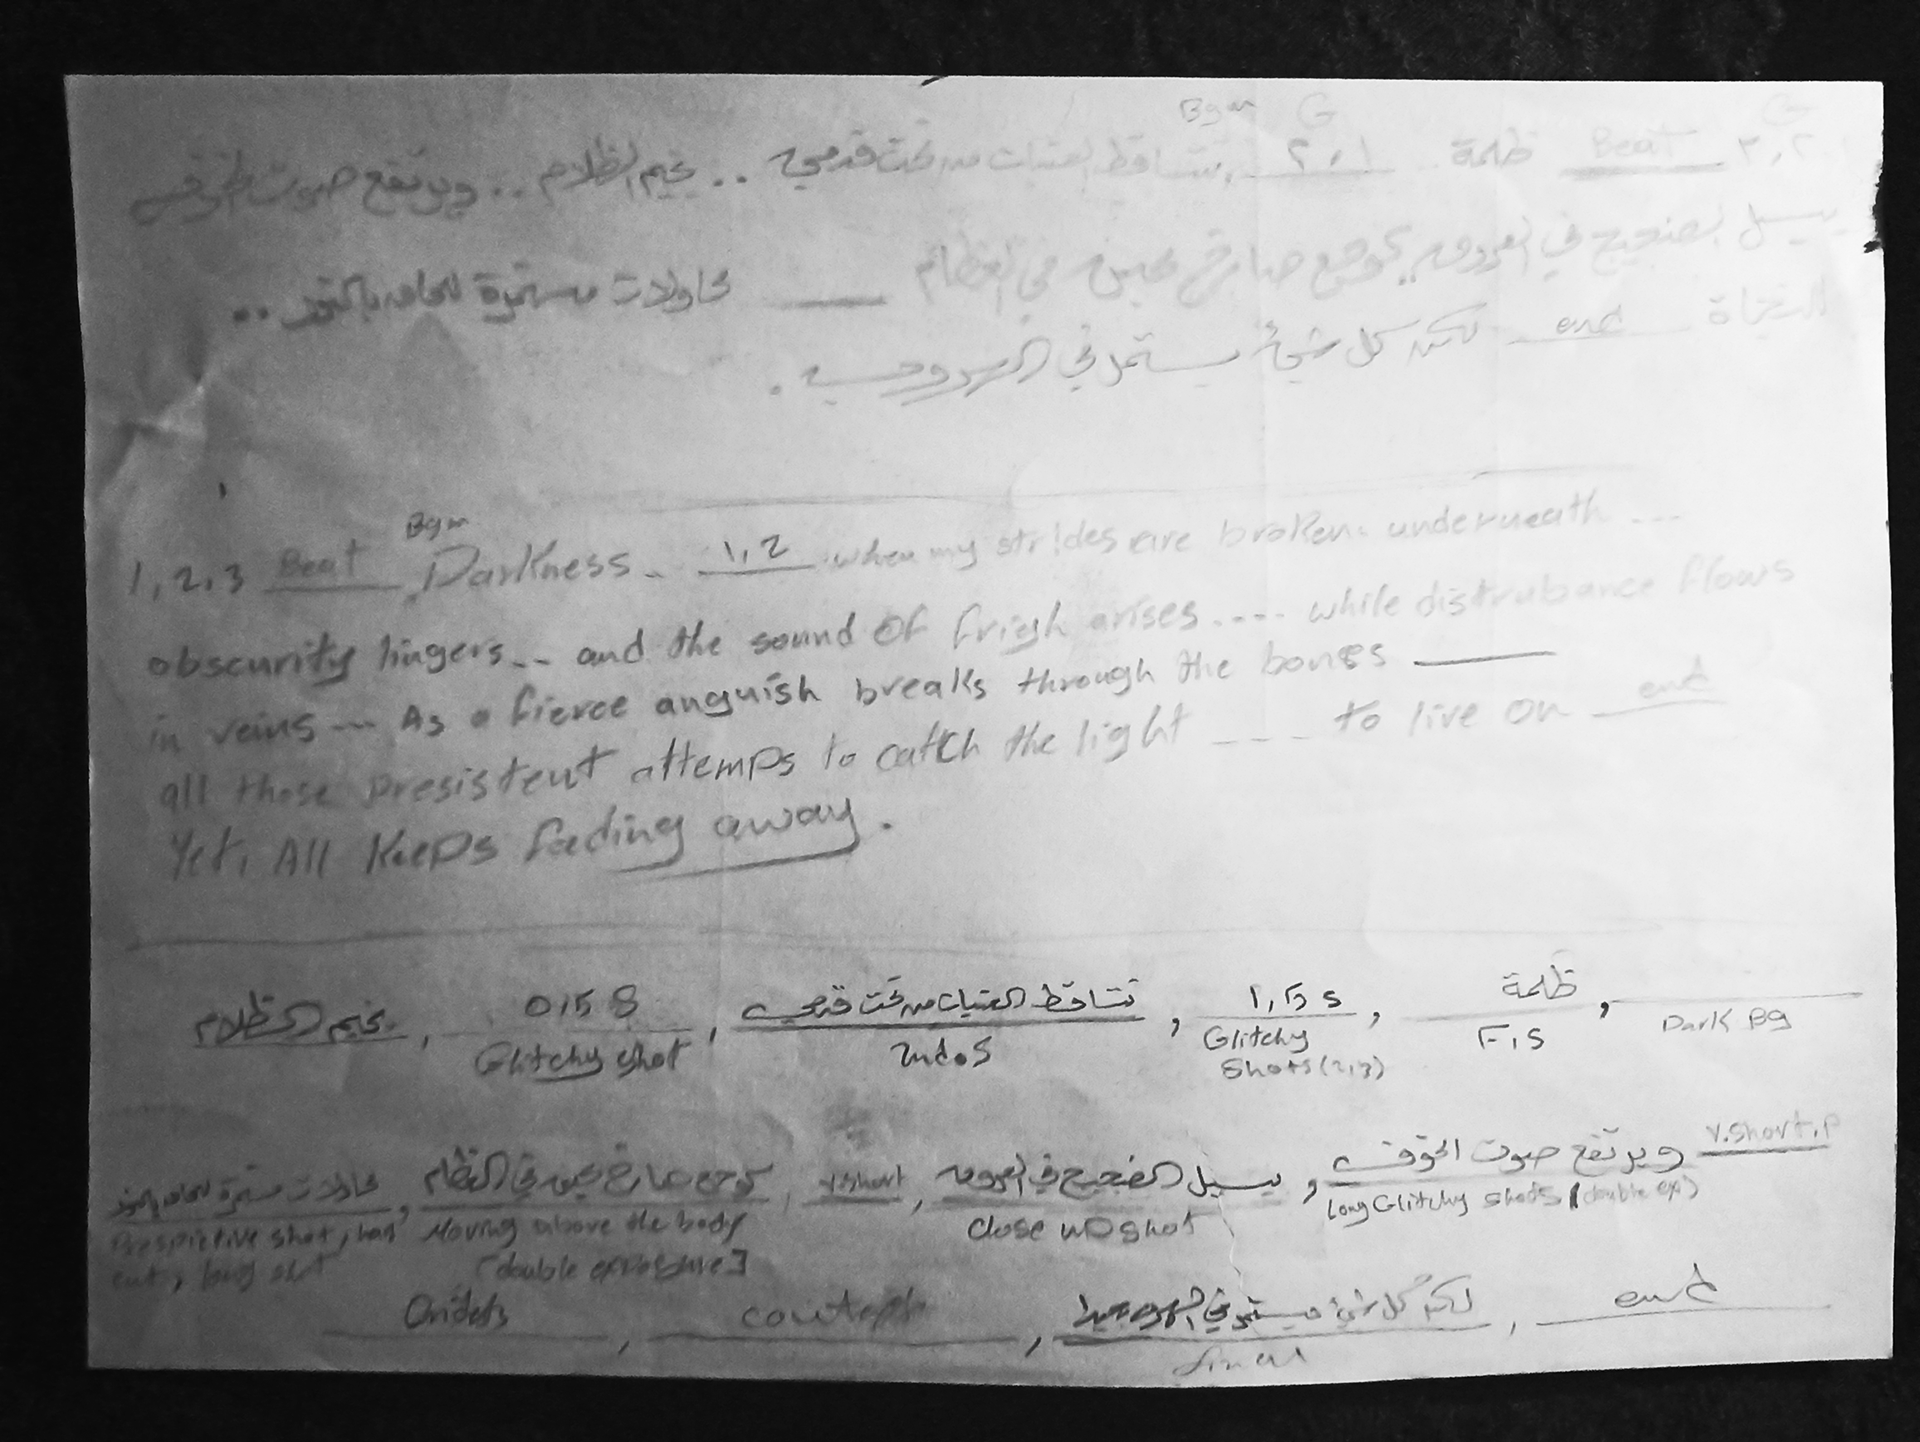 Bgm G G
١,٢,٣ Beat ظلمة .. ٢,١ تتساقط العتبات من تحت قدمي .. يخيم الظلام .. ويرتفع صوت الخوف
يسيل الضجيج في العروق .. كوجع صارخ في العظام ـــ محاولات مستمرة للحاق بالنور ..
النجاة end لكن كل شيء يستمر في الهروب .
Bgm
1,2,3 Beat Darkness .. 1,2 when my strides are broken underneath ...
obscurity lingers... and the sound of frigh arises .... while distrubance flows
in veins ... As a fierce anguish breaks through the bones ___
all those presistent attemps to catch the light .... to live on end
Yet, All Keeps fading away.
ظلمة , 1, s , تتساقط العتبات من تحت قدمي , 0,15 s , يخيم الظلام
Dark Bg F,s Glitchy 2nd.s Glitchy shot
Shots (2,3)
v.short.p ويرتفع صوت الخوف , يسيل الضجيج في العروق , v.short , كوجع صارخ في العظام , محاولات مستمرة للحاق بالنور
Long Glitchy shots (double ex) Close up shot Moving above the body Prespictive shot,
[double exposure] cut, long shot
end , لكن كل شيء يستمر في الهروب ,
final